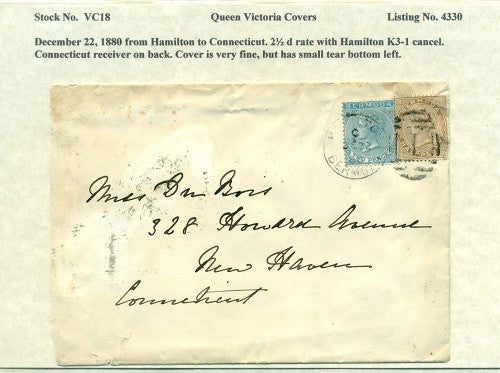 Stock No. VC18 Queen Victoria Covers Listing No. 4330
December 22, 1880 from Hamilton to Connecticut. 2½ d rate with Hamilton K3-1 cancel.
Connecticut receiver on back. Cover is very fine, but has small tear bottom left.
BERMUDA
Miss Du Bois
328 Howard Avenue
New Haven
Connecticut